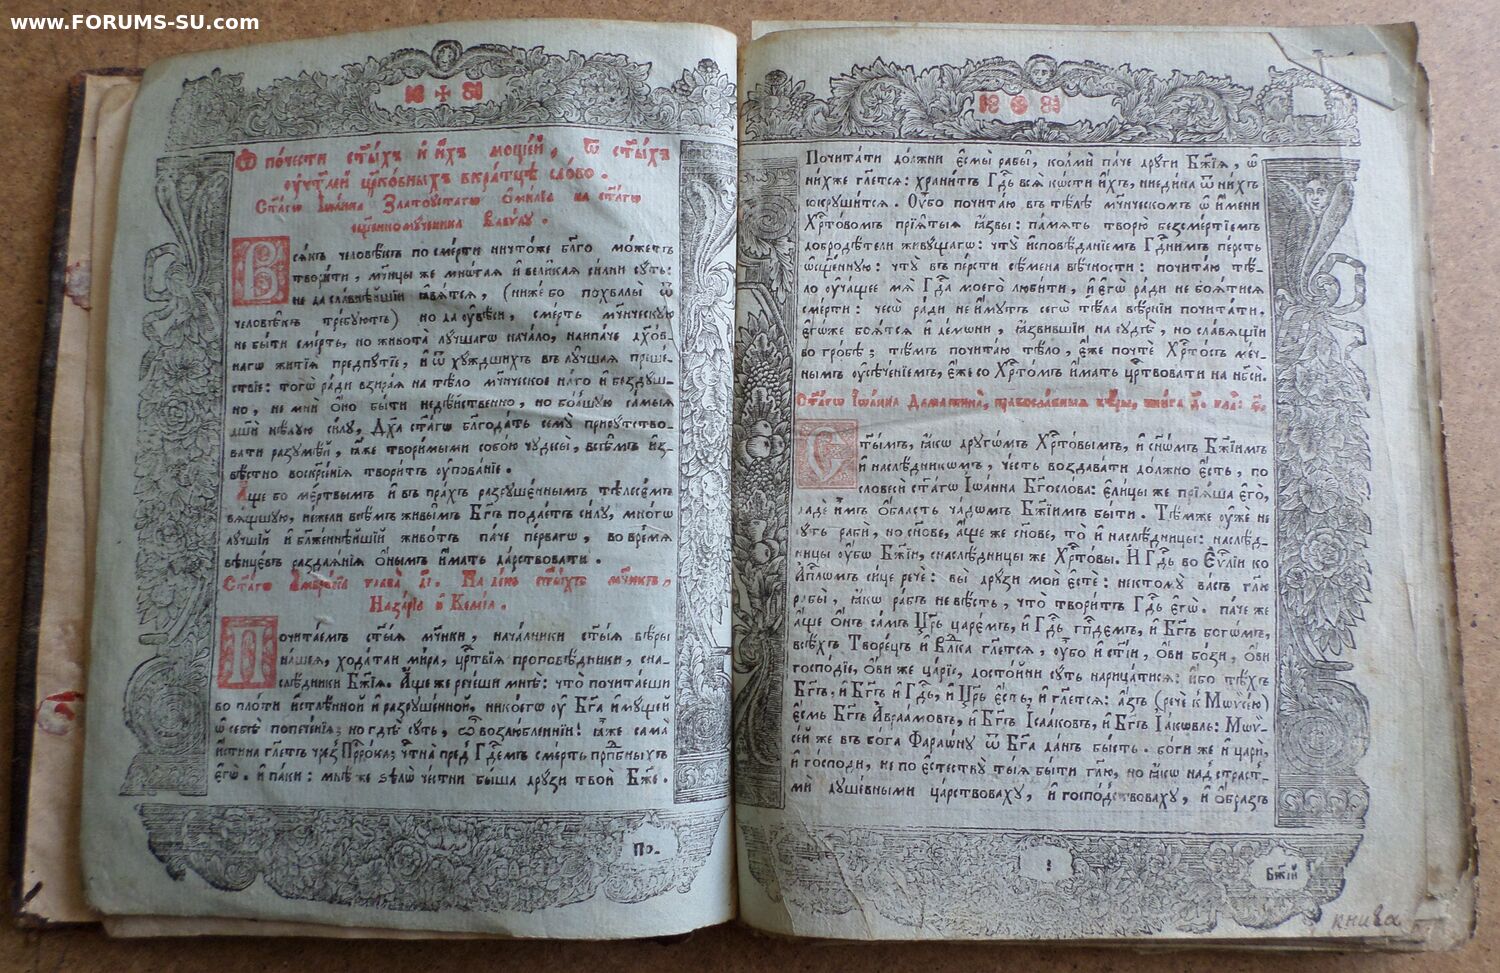 www.FORUMS-SU.com
Ѿ почести ст҃ыхъ и҆ и҆хъ мощей, ѿ ст҃ыхъ
оучт҃лей цр҃ковныхъ вкра́тцѣ сло́во.
Ст҃а́гѡ І҆ѡа́нна Златоустагѡ на ст҃а́гѡ
сщ҃енномученика Вави́лу.
Всѧ́къ человѣ́къ по сме́рти ничто́же бл҃го мо́жетъ
твори́ти, мч҃ицы же мнѡ́гаѧ и҆ вели́каѧ си́лни су́ть:
не да сла́внѣйшїи ꙗ҆вѧ́тсѧ, (ниже́ бо похвалы̀ ѿ
человѣ́къ тре́буютъ) но да оу҆вѣ́си, сме́рть мч҃ническую
не бы́ти сме́рть, но живота̀ лу́чшагѡ нача́ло, наипа́че дх҃ов-
нагѡ житїѧ̀ предпу́тїе, и҆ ѿ ху́ждшихъ въ лу́чшаѧ прише-
ствїе: тогѡ̀ ра́ди взира́ѧ на тѣ́ло мч҃ническое на́го и҆ безду́ш-
но, не мнѝ ѻ҆но̀ бы́ти недѣ́йственно, но бо́лшую самы́ѧ
дш҃ѝ нѣ́кую си́лу, Дх҃а ст҃а́гѡ бл҃года́ть сему̀ прису́тство-
вати разумѣ́й, ꙗ҆́же твори́мыми собо́ю чудесы̀, всѣ́мъ и҆з-
вѣ́стно воскр҃се́нїѧ твори́тъ оу҆пова́нїе.
А҆́ще бо ме́ртвымъ и҆ въ пра́хъ разруше́ннымъ тѣлесе́мъ
вѧ́щшую, не́жели всѣ́мъ живы́мъ Бг҃ъ подае́тъ си́лу, мно́гѡ
лу́чшїй и҆ бл҃же́ннѣйшїй живо́тъ па́че пе́рвагѡ, во вре́мѧ
вѣнце́въ раздаѧ́нїѧ ѻ҆́нымъ и҆́мать да́рствовати.
Ст҃а́гѡ А҆мвро́сїѧ глава̀ На де́нь ст҃ы́хъ мч҃никъ,
Наза́рїѧ и҆ Ке́лсїѧ.
Почита́емъ ст҃ы́ѧ мч҃ники, нача́лники ст҃ы́ѧ вѣ́ры
на́шеѧ, хода́таи ми́ра, црⷭ҇твїѧ проповѣ́дники, сна-
слѣ́дники Бж҃їѧ. А҆́ще же рече́ши мнѣ̀: что̀ почита́еши
во пло́ти и҆стлѣ́нной и҆ разруше́нной, никоегѡ̀ оу҆ Бг҃а и҆му́щей
ѡ҆ себѣ̀ попече́нїѧ; но гдѣ̀ су́ть, ѽ возлю́бленнїи! ꙗ҆́же сама̀
и҆́стина гл҃етъ чрез̾ Прⷪ҇ро́ка; чⷭ҇тна̀ пред̾ Гдⷭ҇емъ сме́рть прпⷣбныхъ
є҆гѡ̀. и҆ па́ки: мнѣ́ же ѕѣлѡ̀ че́стни бы́ша дру́зи твоѝ Бж҃е.
По-
Почита́ти до́лжни є҆смы̀ рабы̀, колмѝ па́че дру́ги Бж҃їѧ, ѡ҆
ни́хже гл҃етсѧ: храни́тъ Гдⷭ҇ь всѧ̀ кѡ́сти и҆́хъ, ни є҆ди́на ѿ ни́хъ
сокруши́тсѧ. Оу҆́бо почита́ю въ тѣ́лѣ мч҃ническомъ ѡ҆ и҆́мени
Хрⷭ҇то́вомъ прїѧ́тыѧ ꙗ҆́звы: па́мѧть творю̀ безсме́ртїемъ
добродѣ́тели живу́щагѡ: чтꙋ̀ и҆сповѣ́данїемъ Гдⷭ҇нимъ пе́рсть
ѡ҆сщ҃е́нную: чтꙋ̀ въ пе́рсти сѣ́мена вѣ́чности: почита́ю тѣ́-
ло оу҆ча́щее мѧ̀ Гдⷭ҇а моего̀ люби́ти, и҆ є҆гѡ̀ ра́ди не боѧ́тисѧ
сме́рти: чесѡ̀ ра́ди не и҆́мутъ сегѡ̀ тѣ́ла вѣ́рнїи почита́ти,
є҆гѡ́же боѧ́тсѧ и҆ де́мони, ꙗ҆зви́вшїи на судѣ̀, но сла́вѧщїи
во гро́бѣ; тѣ́мъ почита́ю тѣ́ло, є҆́же почтѐ Хрⷭ҇то́съ ме́ч-
нымъ оу҆сѣче́нїемъ, є҆́же со Хрⷭ҇то́мъ и҆́мать црⷭ҇твовати на нб҃сѝ.
Ст҃а́гѡ І҆ѡа́нна Дамаски́на, правосла́вныѧ вѣ́ры, кни́га д҃. гла:
Ст҃ы́мъ, ꙗ҆́кѡ другѡ́мъ Хрⷭ҇тѡ́вымъ, и҆ сн҃ѡ́мъ Бж҃їимъ
и҆ наслѣ́дникѡмъ, че́сть воздава́ти до́лжно є҆́сть, по
словесѝ ст҃а́гѡ І҆ѡа́нна Бг҃осло́ва: є҆ли́цы же прїѧ́ша є҆го̀,
дадѐ и҆̀мъ ѻ҆́бласть ча́дѡмъ Бж҃їимъ бы́ти. Тѣ́мже оу҆жѐ не
су́ть рабѝ, но сн҃ове, а҆́ще же сн҃ове, то̀ и҆ наслѣ́дницы: наслѣ́д-
ницы оу҆́бѡ Бж҃їи, снаслѣ́дницы же Хрⷭ҇тѡ́вы. И҆ Гдⷭ҇ь во Є҆ѵⷢ҇лїи ко
А҆пⷭ҇лѡмъ си́це речѐ: вы̀ дру́зи моѝ є҆стѐ: не ктому̀ ва́съ гл҃ю
рабы̀, ꙗ҆́кѡ ра́бъ не вѣ́сть, что̀ твори́тъ Гдⷭ҇ь є҆гѡ̀. па́че же
а҆́ще ѻ҆́нъ са́мъ Цр҃ь царе́мъ, и҆ Гдⷭ҇ь гпⷭ҇де́мъ, и҆ Бг҃ъ богѡ́мъ,
всѣ́хъ Творе́цъ и҆ Влⷣка гл҃етсѧ, оу҆́бо и҆ ст҃і́и, ѻ҆́ви бо́зи, ѻ҆́ви
госпо́дїе, ѻ҆́ви же ца́рїе, досто́йни су́ть нарица́тисѧ: и҆́бо тѣ́хъ
Бг҃ъ, и҆ Бг҃ъ и҆ Гдⷭ҇ь, и҆ Цр҃ь є҆́сть, и҆ гл҃етсѧ: а҆́зъ (речѐ к̾ Мѡѷсе́ю)
є҆́смь Бг҃ъ А҆враа́мовъ, и҆ Бг҃ъ І҆саа́ковъ, и҆ Бг҃ъ І҆а́кѡвль: Мѡѷ-
се́й же въ бо́га Фараѡ́ну ѿ Бг҃а да́нъ бы́сть. бо́ги же и҆ царѝ,
и҆ го́споди, не по є҆стеству̀ ты́ѧ бы́ти гл҃ю, но ꙗ҆́кѡ над̾ страстⸯ-
мѝ душе́вными ца́рствоваху, и҆ госпо́дствоваху, и҆ ѻ҆́бразъ
Бж҃їй
книга